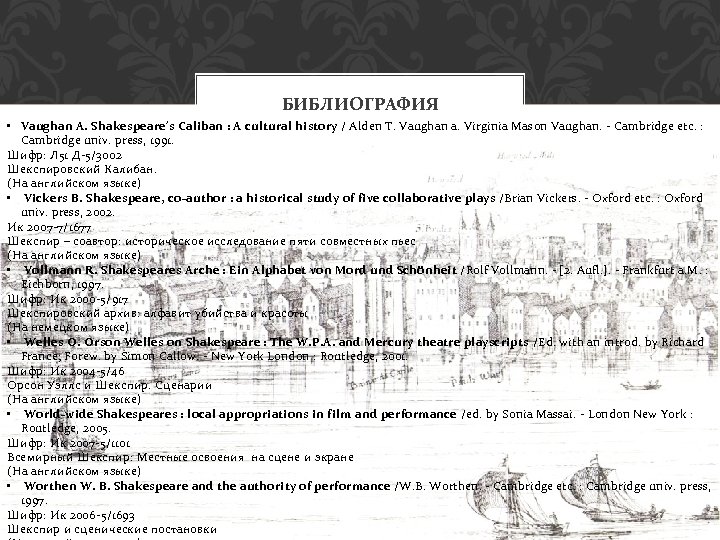 БИБЛИОГРАФИЯ
• Vaughan A. Shakespeare's Caliban : A cultural history / Alden T. Vaughan a. Virginia Mason Vaughan. - Cambridge etc. :
Cambridge univ. press, 1991.
Шифр: Л51 Д-5/3002
Шекспировский Калибан.
(На английском языке)
• Vickers B. Shakespeare, co-author : a historical study of five collaborative plays /Brian Vickers. - Oxford etc. : Oxford
univ. press, 2002.
Ик 2007-7/1677
Шекспир – соавтор: историческое исследование пяти совместных пьес
(На английском языке)
• Vollmann R. Shakespeares Arche : Ein Alphabet von Mord und Schönheit /Rolf Vollmann. - [2. Aufl.]. - Frankfurt a.M. :
Eichborn, 1997.
Шифр: Ик 2000-5/917
Шекспировский архив: алфавит убийства и красоты
(На немецком языке)
• Welles O. Orson Welles on Shakespeare : The W.P.A. and Mercury theatre playscripts /Ed. with an introd. by Richard
France; Forew. by Simon Callow. - New York London : Routledge, 2001.
Шифр: Ик 2004-5/46
Орсон Уэллс и Шекспир. Сценарии
(На английском языке)
• World-wide Shakespeares : local appropriations in film and performance /ed. by Sonia Massai. - London New York :
Routledge, 2005.
Шифр: Ик 2007-5/1101
Всемирный Шекспир: Местные освоения на сцене и экране
(На английском языке)
• Worthen W. B. Shakespeare and the authority of performance /W.B. Worthen. - Cambridge etc. : Cambridge univ. press,
1997.
Шифр: Ик 2006-5/1693
Шекспир и сценические постановки